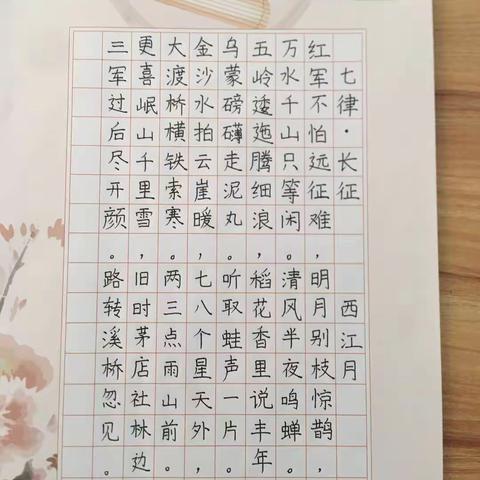 七律·长征
红军不怕远征难，
万水千山只等闲。
五岭逶迤腾细浪，
乌蒙磅礴走泥丸。
金沙水拍云崖暖，
大渡桥横铁索寒。
更喜岷山千里雪，
三军过后尽开颜。
西江月
明月别枝惊鹊，
清风半夜鸣蝉。
稻花香里说丰年
听取蛙声一片。
七八个星天外，
两三点雨山前。
旧时茅店社林边
路转溪桥忽见。